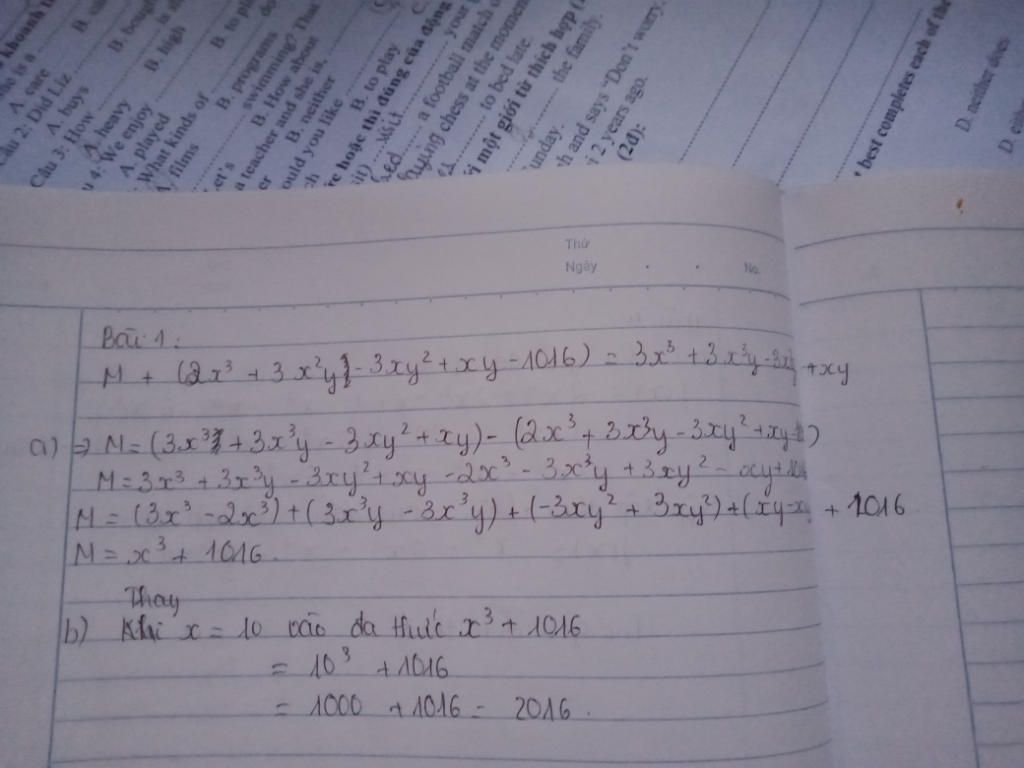 khoanh
is a
A. care
Câu 2: Did Liz
A. buys
Câu 3: How
A. heavy
4: We enjoy
A. played
What kinds of
A. films
B. bough
B. high
B. to pl
B. programs
swimming? That
B. How about
a teacher and she is.
B. neither
ould you like
B. to play
hoặc thì đúng của động
a football match
chess at the moment
to bed late.
một giới từ thích hợp
the family.
unday.
and says "Don't worry.
2 years ago.
(2đ):
best completes each of the
D. neither does
D.
Thứ
Ngày . . No.
Bài 1:
M + (2x³ + 3x²y - 3xy² + xy - 1016) = 3x³ + 3x³y - 3x + xy
a) ⇒ M = (3x³ + 3x³y - 3xy² + xy) - (2x³ + 3x³y - 3xy² + xy - )
M = 3x³ + 3x³y - 3xy² + xy - 2x³ - 3x³y + 3xy² - xy + 10
M = (3x³ - 2x³) + (3x³y - 3x³y) + (-3xy² + 3xy²) + (xy - xy + 1016
M = x³ + 1016.
Thay
b) Khi x = 10 vào đa thức x³ + 1016
= 10³ + 1016
= 1000 + 1016 = 2016.